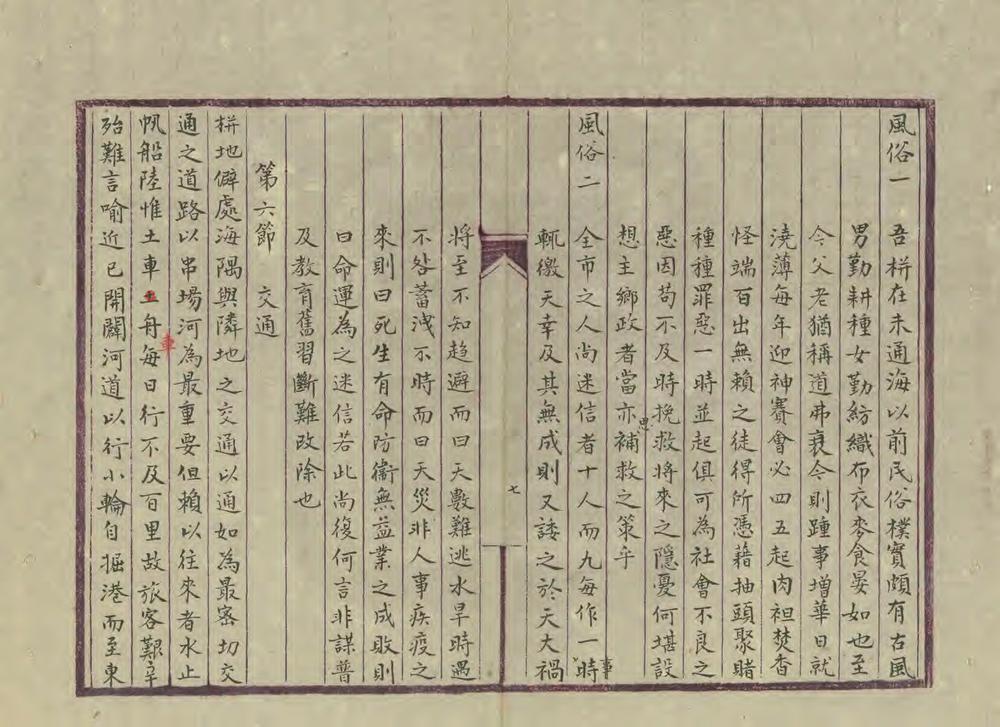 風俗一
吾栟在未通海以前民俗樸實頗有古風
男勤耕種女勤紡織布衣麥食晏如也至
今父老猶稱道弗衰今則踵事增華日就
澆薄每年迎神賽會必四五起肉袒焚香
怪端百出無賴之徒得所憑藉抽頭聚賭
種種罪惡一時並起俱可為社會不良之
惡因苟不及時挽救將來之隱憂何堪設
想主鄉政者當亦思補救之策乎
風俗二
全市之人尚迷信者十人而九每作一事時
輒徼天幸及其無成則又諉之於天大禍
七
將至不知趨避而曰天數難逃水旱時遇
不咎蓄洩不時而曰天災非人事疾疫之
來則曰死生有命防衛無益業之成敗則
曰命運為之迷信若此尚復何言非謀普
及教育舊習斷難改除也
第六節 交通
栟地僻處海隅與隣地之交通以通如為最密切交
通之道路以串場河為最重要但賴以往來者水止
帆船陸惟土車土舟車每日行不及百里故旅客艱辛
殆難言喻近已開闢河道以行小輪自掘港而至東